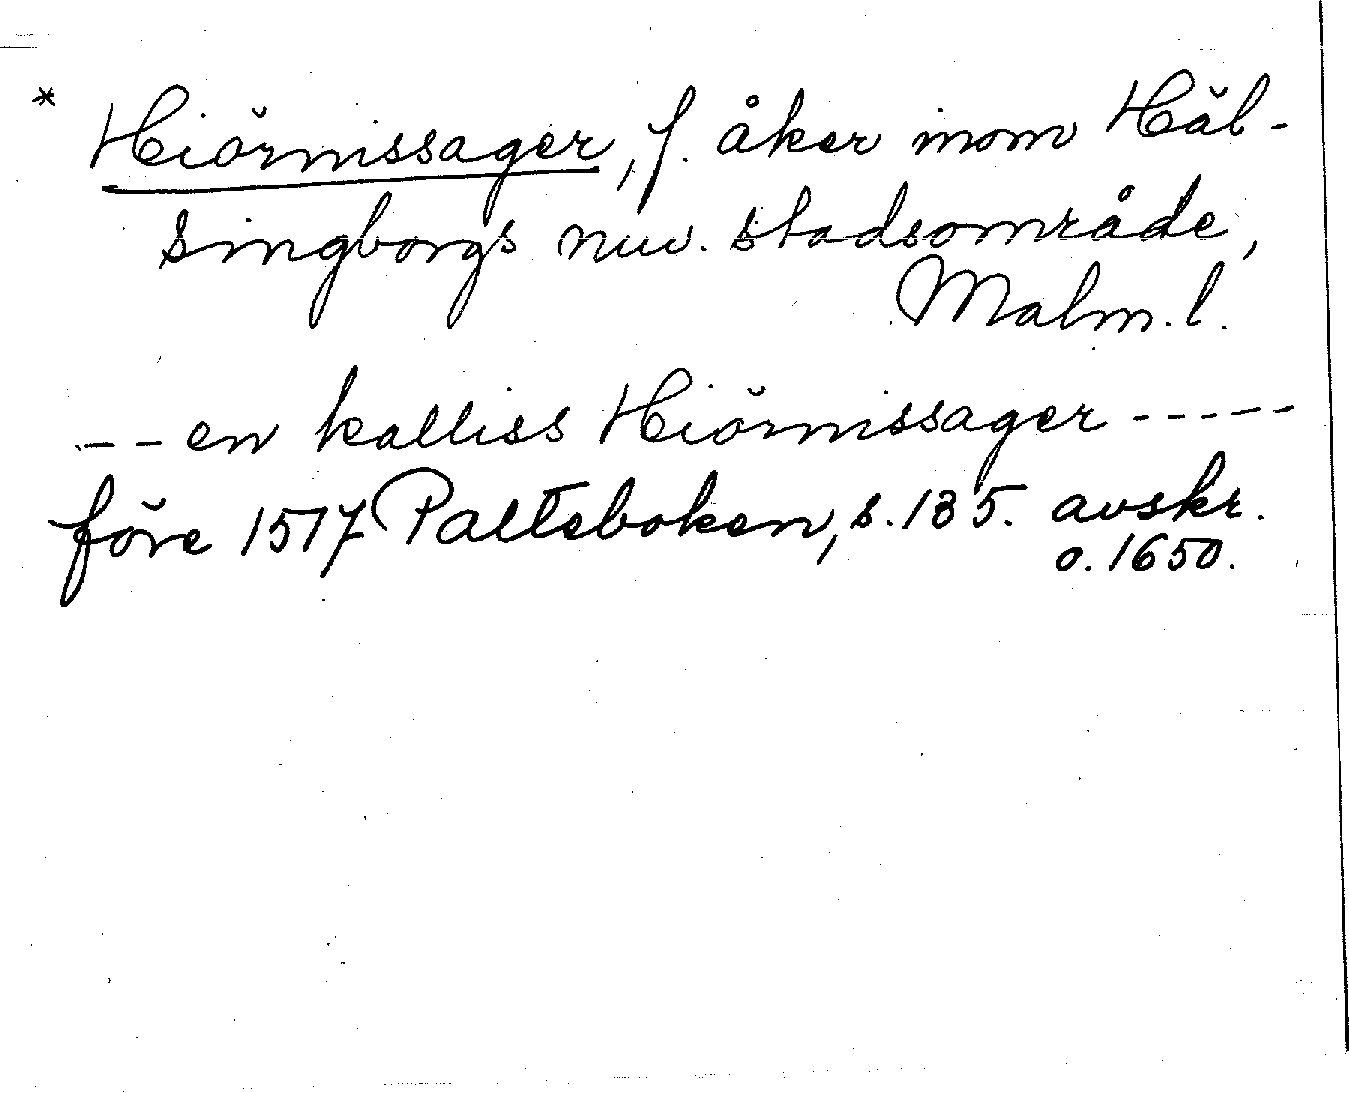 * Hiörnissager, f. åker inom Häl-
singborgs nuv. stadsområde,
Malm. l.
-- en kalliss Hiörnissager -----
före 1517 Palteboken, s. 135. avskr.
o. 1650.